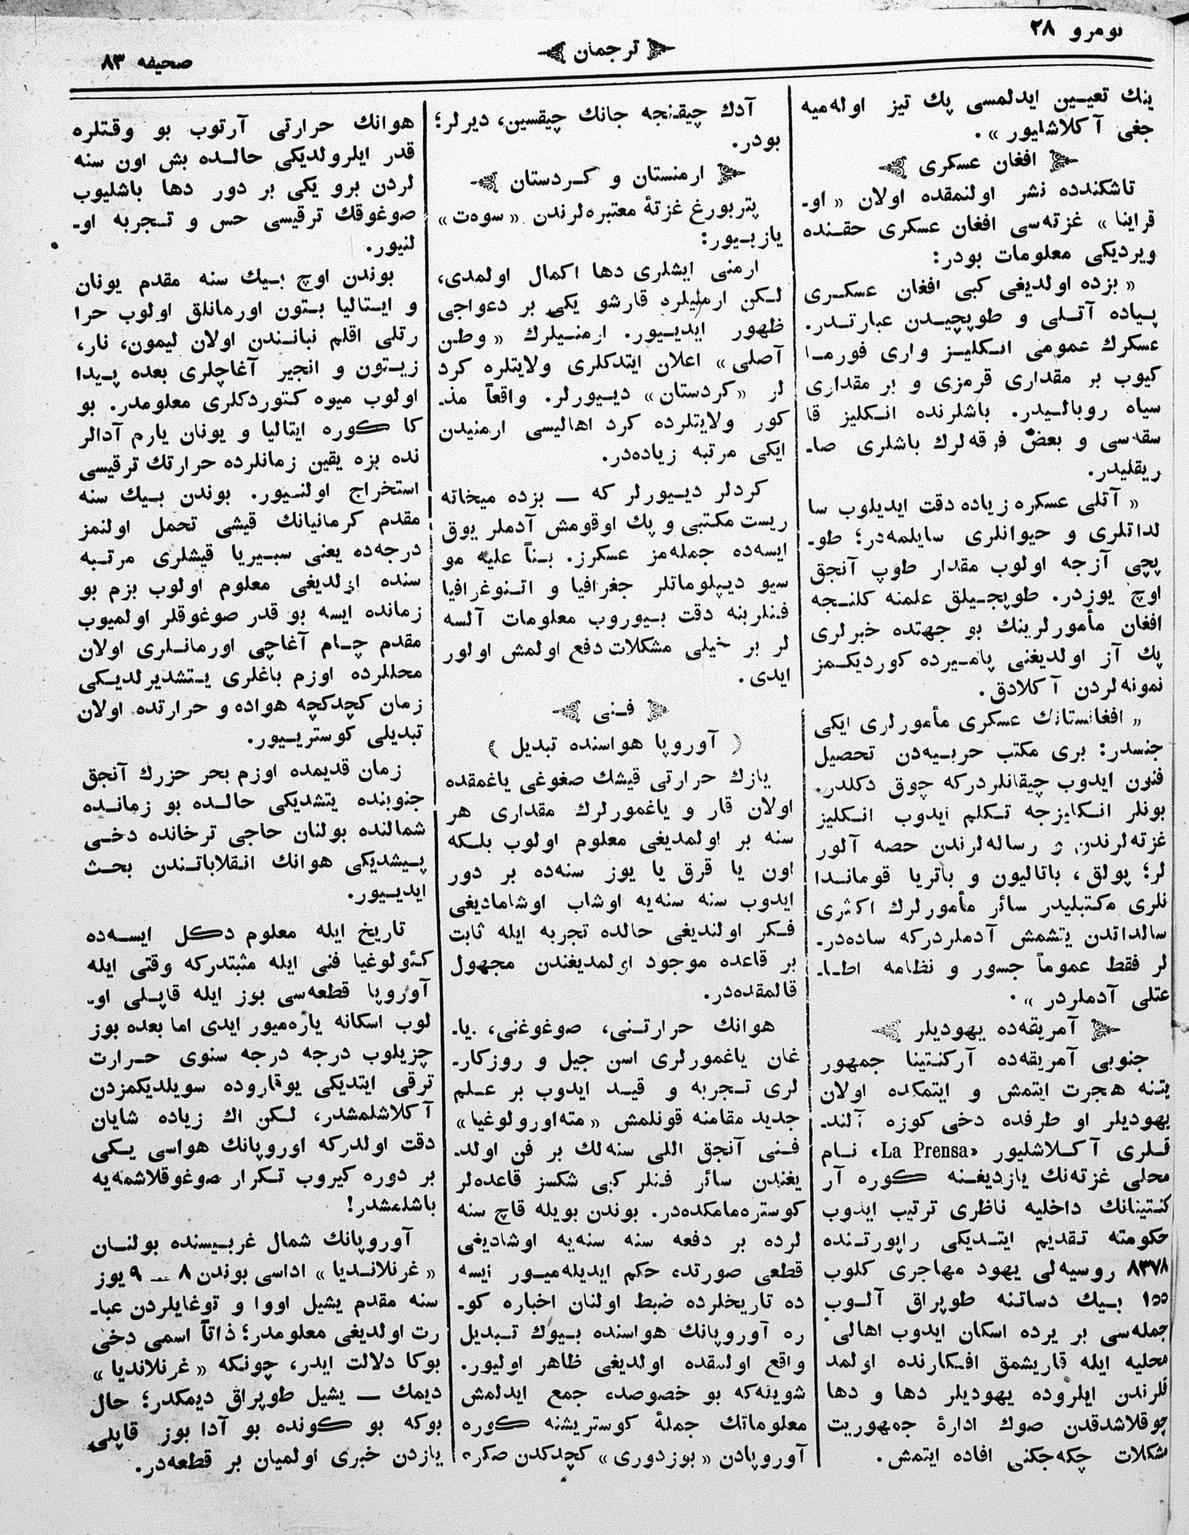 نومرو ٢٨
ترجمان
صحيفه ٨٣
ينك تعيين ايدلمسى پك تيز اوله ميه
جغى آكلاشليور » .
افغان عسكرى
تاشكندده نشر اولنمقده اولان « او-
قراينا » غزته سى افغان عسكرى حقنده
ويرديكى معلومات بودر:
« بزده اولديغى كبى افغان عسكرى
پياده آتلى و طوپچيدن عبارتدر.
عسكرك عمومى انكليز وارى فورما
كيوب بر مقدارى قرمزى و بر مقدارى
سياه روباليدر. باشلرنده انكليز قا
سقه سى و بعض فرقه لرك باشلرى صا-
ريقليدر.
« آتلى عسكره زياده دقت ايديلوب سا
لداتلرى و حيوانلرى سايلمه در؛ طو-
پچى آزجه اولوب مقدار طوپ آنجق
اوچ يوزدر. طوپجيلق علمنه كلنجه
افغان مأمورلرينك بو جهتده خبرلرى
پك آز اولديغنى پاميرده كورديكمز
نمونه لردن آكلادق.
« افغانستانك عسكرى مأمورلرى ايكى
جنسدر: برى مكتب حربيه دن تحصيل
فنون ايدوب چيقانلردركه چوق دكلدر.
بونلر انكليزجه تكلم ايدوب انكليز
غزته لرندن و رساله لرندن حصه آلور
لر؛ پولق، باتاليون و باتريا قوماندا
نلرى مكتبليدر سائر مأمورلرك اكثرى
سالداتدن يتشمش آدملردركه ساده در-
لر فقط عموماً جسور و نظامه اطا-
عتلى آدملردر » .
آمريقه ده يهوديلر
جنوبى آمريقه ده آركنتينا جمهور
يتنه هجرت ايتمش و ايتمكده اولان
يهوديلر او طرفده دخى كوزه آلند-
قلرى آكلاشليور «La Prensa» نام
محلى غزته نك يازديغنه كوره آر
كنتينانك داخليه ناظرى ترتيب ايدوب
حكومته تقديم ايتديكى راپورتنده
٨٣٧٨ روسيه لى يهود مهاجرى كلوب
١٥٥ بيك دساتنه طوپراق آلوب
جمله سى بر يرده اسكان ايدوب اهالى
محليه ايله قاريشمق افكارنده اولمد
قلرندن ايلروده يهوديلر دها و دها
چوقلاشدقدن صوك ادارۀ جمهوريت
مشكلات چكه جكنى افاده ايتمش.
آدك چيقنجه جانك چيقسين، ديرلر؛
بودر.
ارمنستان و كردستان
پتربورغ غزتۀ معتبره لرندن « سوه ت »
يازبيور:
ارمنى ايشلرى دها اكمال اولمدى،
لكن ارمنيلره قارشو يكى بر دعواجى
ظهور ايدييور. ارمنيلرك « وطن
آصلى » اعلان ايتدكلرى ولايتلره كرد
لر « كردستان » دييورلر. واقعاً مذ-
كور ولايتلرده كرد اهاليسى ارمنيدن
ايكى مرتبه زياده در.
كردلر دييورلر كه — بزده ميخانه
ريست مكتبى و پك اوقومش آدملر يوق
ايسه ده جمله مز عسكرز. بناً عليه مو
سيو ديپلوماتلر جغرافيا و اتنوغرافيا
فنلرينه دقت بيوروب معلومات آلسه
لر بر خيلى مشكلات دفع اولمش اولور
ايدى.
فنى
( آوروپا هواسنده تبديل )
يازك حرارتى قيشك صغوغى ياغمقده
اولان قار و ياغمورلرك مقدارى هر
سنه بر اولمديغى معلوم اولوب بلكه
اون يا قرق يا يوز سنه ده بر دور
ايدوب سنه سنه يه اوشاب اوشاماديغى
فكر اولنديغى حالده تجربه ايله ثابت
بر قاعده موجود اولمديغندن مجهول
قالمقده در.
هوانك حرارتنى، صوغوغنى، يا-
غان ياغمورلرى اسن جيل و روزكار-
لرى تجربه و قيد ايدوب بر علم
جديد مقامنه قونلمش « مته اورولوغيا »
فنى آنجق اللى سنه لك بر فن اولد-
يغندن سائر فنلر كبى شكسز قاعده لر
كوستره مامكده در. بوندن بويله قاچ سنه
لرده بر دفعه سنه سنه يه اوشاديغى
قطعى صورتده حكم ايديله ميور ايسه
ده تاريخلرده ضبط اولنان اخباره كو-
ره آوروپانك هواسنده بيوك تبديل
واقع اولمقده اولديغى ظاهر اوليور.
شويله كه بو خصوصده جمع ايدلمش
معلوماتك جملۀ كوستريشنه كوره
آوروپادن « بوزدورى » كچدكدن صكره
هوانك حرارتى آرتوب بو وقتلره
قدر ايلرولديكى حالده بش اون سنه
لردن برو يكى بر دور دها باشليوب
صوغوقك ترقيسى حس و تجربه او-
لنيور.
بوندن اوچ بيك سنه مقدم يونان
و ايتاليا بتون اورمانلق اولوب حرا
رتلى اقلم نباتندن اولان ليمون، نار،
زيتون و انجير آغاچلرى بعده پيدا
اولوب ميوه كتوردكلرى معلومدر. بو
كا كوره ايتاليا و يونان يارم آدالر
نده بزه يقين زمانلرده حرارتك ترقيسى
استخراج اولنيور. بوندن بيك سنه
مقدم كرمانيانك قيشى تحمل اولنمز
درجه ده يعنى سبيريا قيشلرى مرتبه
سنده اولديغى معلوم اولوب بزم بو
زمانده ايسه بو قدر صوغوقلر اولميوب
مقدم چام آغاچى اورمانلرى اولان
محللرده اوزم باغلرى يتشديرلديكى
زمان كچدكچه هواده و حرارتده اولان
تبديلى كوسترييور.
زمان قديمده اوزم بحر حزرك آنجق
جنوبنده يتشديكى حالده بو زمانده
شمالنده بولنان حاجى ترخانده دخى
پيشديكى هوانك انقلاباتندن بحث
ايدييور.
تاريخ ايله معلوم دكل ايسه ده
كئولوغيا فنى ايله مثبتدركه وقتى ايله
آوروپا قطعه سى بوز ايله قاپلى او-
لوب اسكانه يارەميور ايدى اما بعده بوز
چزيلوب درجه درجه سنوى حرارت
ترقى ايتديكى يوقاروده سويلديكمزدن
آكلاشلمشدر، لكن اك زياده شايان
دقت اولدركه اوروپانك هواسى يكى
بر دوره كيروب تكرار صوغوقلاشمه يه
باشلمشدر!
آوروپانك شمال غربيسنده بولنان
« غرنلانديا » اداسى بوندن ٨ — ٩ يوز
سنه مقدم يشيل اووا و توغايلردن عبا-
رت اولديغى معلومدر؛ ذاتاً اسمى دخى
بوكا دلالت ايدر، چونكه « غرنلانديا »
ديمك — يشيل طوپراق ديمكدر؛ حال
بوكه بو كونده بو آدا بوز قاپلى
يازدن خبرى اولميان بر قطعه در.